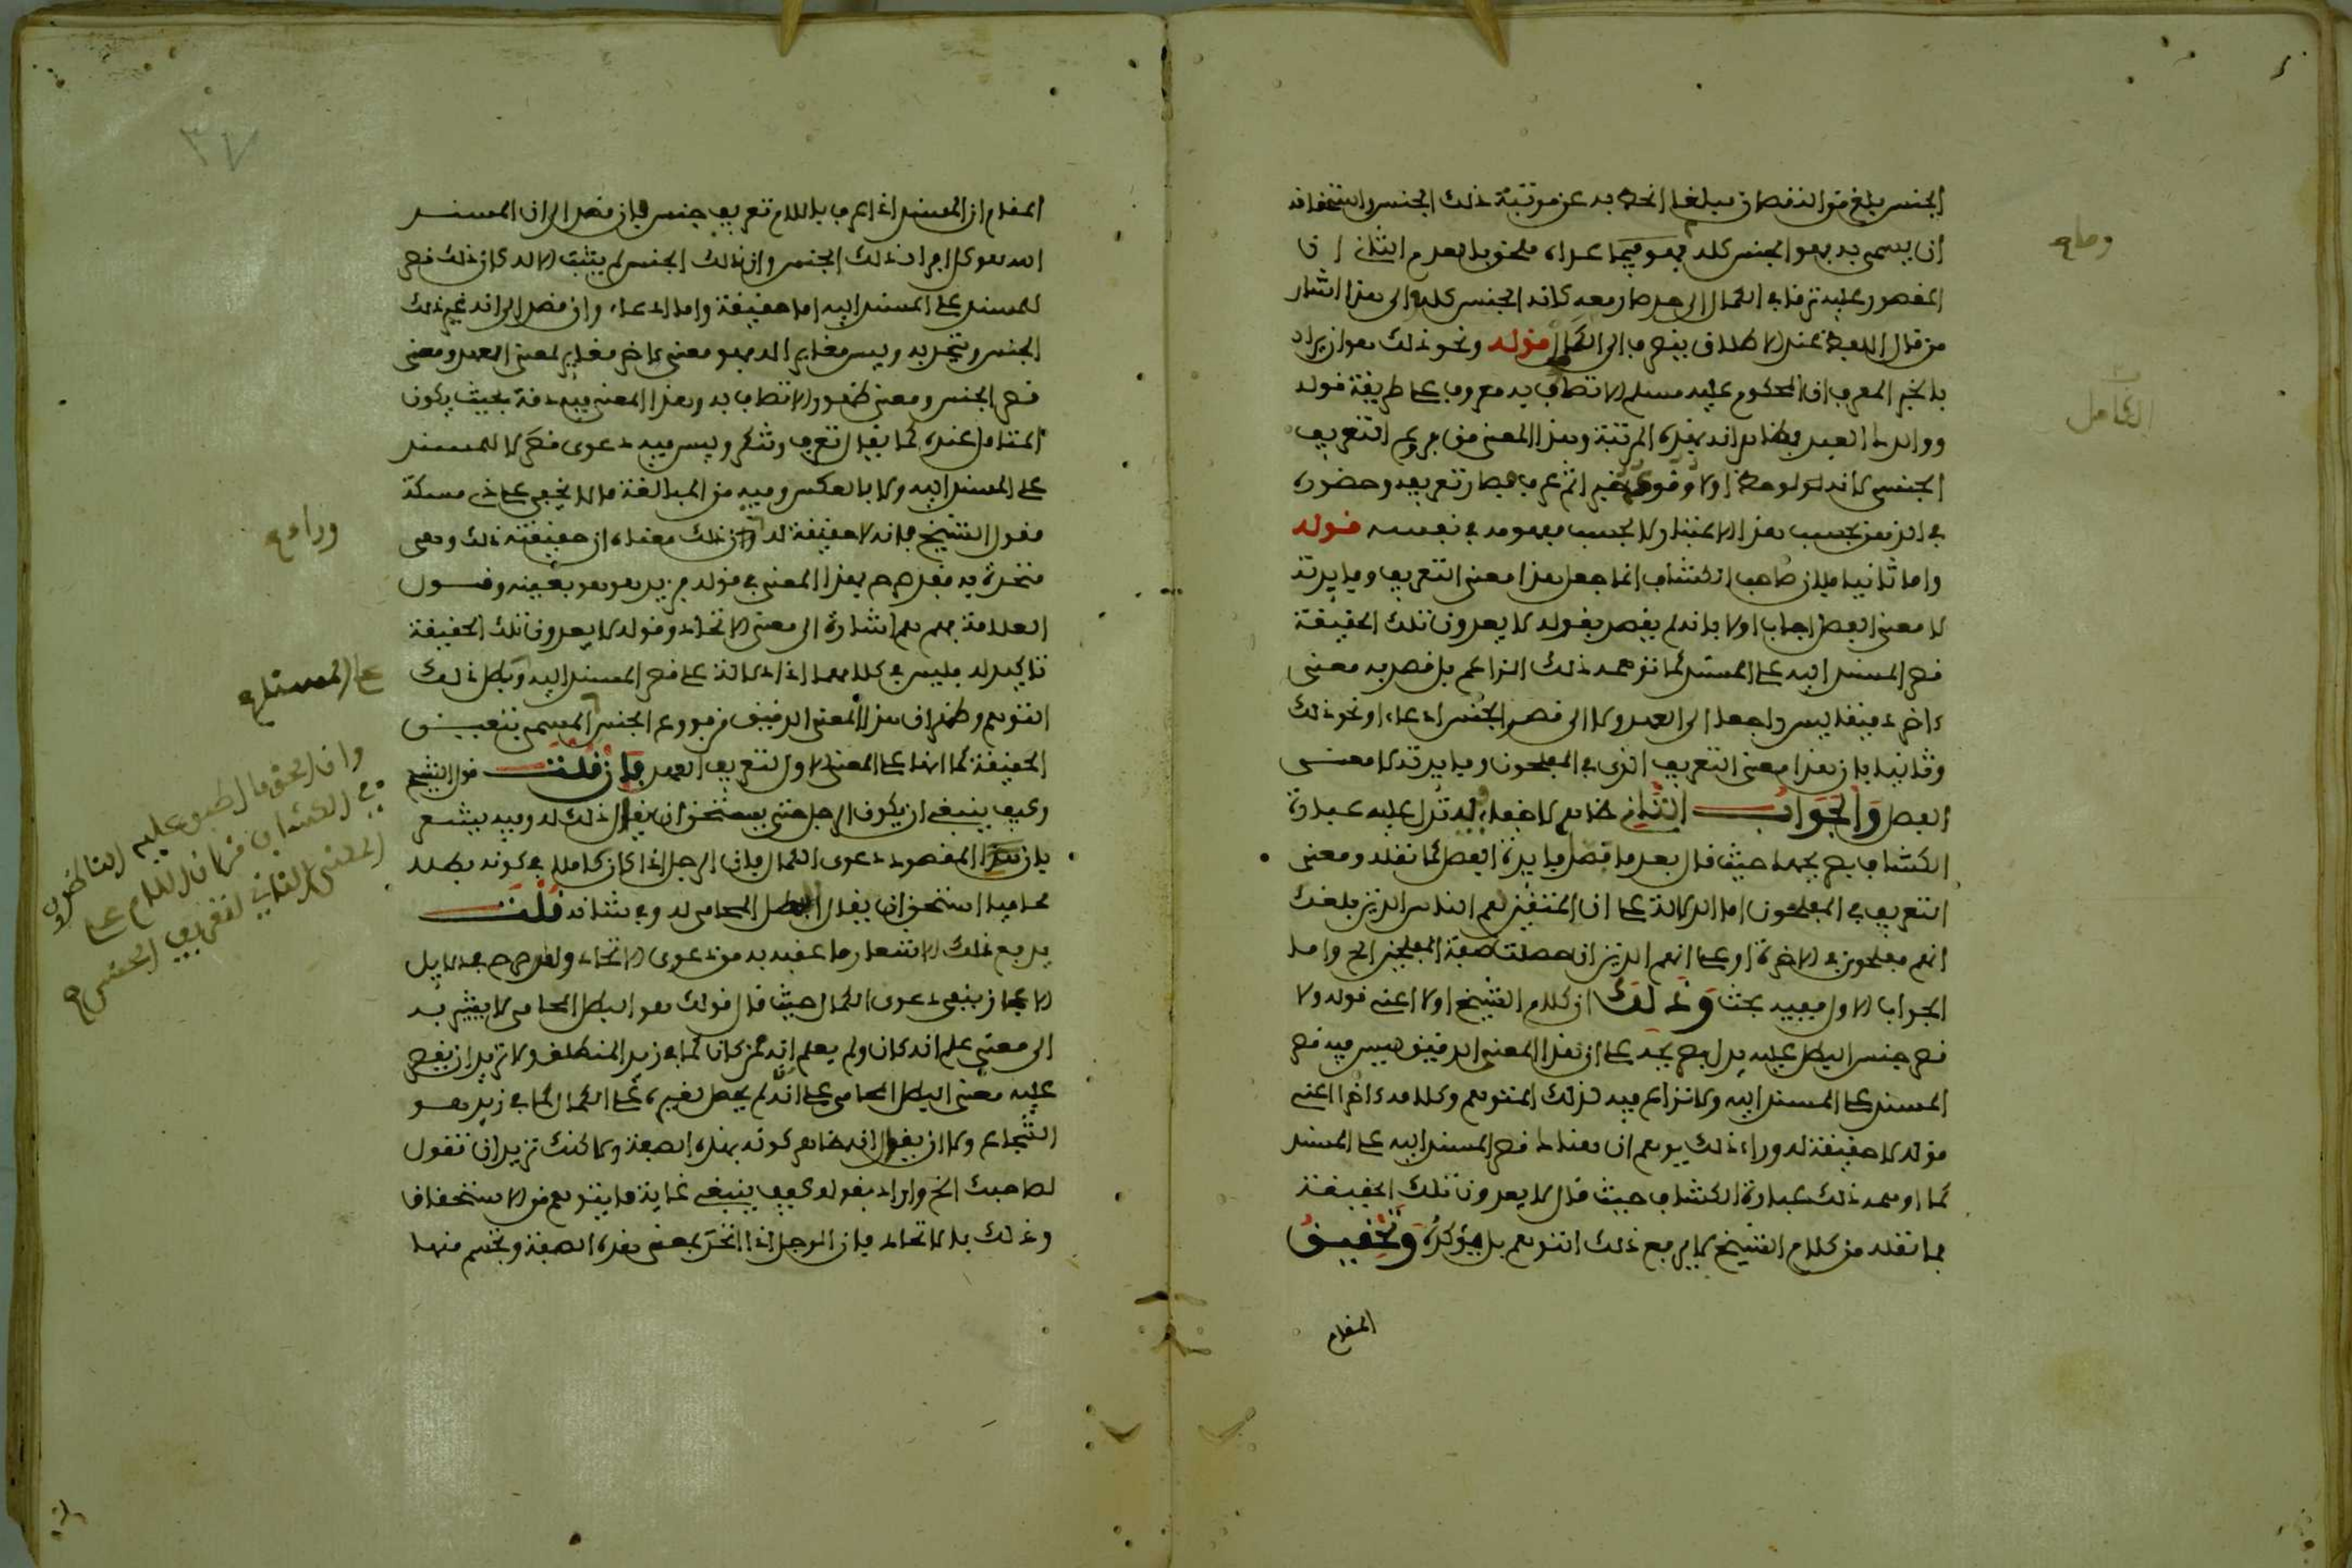 الجنس بلغ من النقصان مبلغا انحط به عن مرتبة ذلك الجنس واستحقاق
ان يسمى به فهو الجنس كله فهو فيما عداه ملحق بالعدم الثاني ان
المقصور عليه ترقى في الكمال الى حد صار معه كانه الجنس كله والى هذا اشار
من قال اللفظ عند الاطلاق ينصرف الى الكمال قوله ونحو ذلك هو ان يراد
بالخبر المعرف ان المحكوم عليه مسلم الاتصاف به معروف على طريقة قوله
ووالدك العبد فظاهر انه بهذه المرتبة وهذا المعنى من فروع التعريف
الجنسي كانه لوحظ اولا وقوعه خبرا ثم عرف فصار تعريفه وحضوره
في الذهن بحسب هذا الاعتبار لا بحسب مفهومه في نفسه قوله
واما ثانيا فلان صاحب الكشاف انما جعل هذا معنى التعريف وفايدته
لا معنى الفصل اجاب اولا بانه لم يقصد بقوله لا يعدون تلك الحقيقة
قصر المسند اليه على المسند كما توهمه ذلك الزاعم بل قصد به معنى
ءاخر دقيقا ليس راجعا الى العهد ولا الى قصر الجنس ادعاء او نحو ذلك
وثانيا بان هذا معنى التعريف الذي في المفلحون وفايدته لا معنى
الفصل والجواب الثاني ظاهر لا خفاء به تدل عليه عبارة
الكشاف صريحا حيث قال بعد ما فصل فايدة الفصل كما نقله ومعنى
التعريف في المفلحون اما الدلالة على ان المتقين هم الناس الذين بلغك
انهم مفلحون في الاخرة او على انهم الذين ان حصلت صفة المفلحين الخ واما
الجواب الاول ففيه بحث وذلك ان كلام الشيخ اولا اعني قوله ولا
قصر جنس البطل عليه يدل صريحا على ان هذا المعنى الدقيق ليس فيه قصر
المسند على المسند اليه ولا نزاع فيه لذلك المتوهم وكلامه ءاخرا اعني
قوله لا حقيقة له وراء ذلك يوهم ان هناك قصر المسند اليه على المسند
كما اوهمه ذلك عبارة الكشاف حيث قال لا يعدون تلك الحقيقة
فما نقله من كلام الشيخ لا يدفع ذلك التوهم بل يؤكده وتحقيق
المقام
وصار
الكامل
٣٧
المقام ان المسند اذا عرف باللام تعريف جنس فان قصد الى ان المسند
اليه هو كل افراد ذلك الجنس وان ذلك الجنس لم يثبت الا له كان ذلك قصر
للمسند على المسند اليه اما حقيقة واما ادعاء وان قصد الى انه عين ذلك
الجنس ومتحد به وليس مغايرا له فهو معنى ءاخر مغاير لمعنى العهد ومعنى
قصر الجنس ومعنى ظهور الاتصاف به وهذا المعنى فيه دقة بحيث يكون
المتامل عنده كما يقال تعرف وتنكر وليس فيه دعوى قصر لا للمسند
على المسند اليه ولا بالعكس وفيه من المبالغة ما لا يخفى على ذي مسكة
فقول الشيخ فانه لا حقيقة له وراء ذلك معناه ان حقيقته ذلك وهي
متحدة به فقد صرح بهذا المعنى في قوله في زيد هو هو بعينه وقول
العلامة فهم هم اشارة الى معنى الاتحاد وقوله لا يعدون تلك الحقيقة
تاكيد له فليس في كلامهما اذا دلالة على قصر المسند اليه وبطل ذلك
التوهم وظهر ان هذا المعنى الدقيق من فروع الجنس المسمى بتعريف
الحقيقة كما انها على المعنى الاول لتعريف العهد فان قلت قول الشيخ
وكيف ينبغي ان يكون الرجل حتى يستحق ان يقال ذلك له وفيه يشعر
بان هذا المقصود دعوى الكمال فان الرجل اذا كان كاملا في كونه بطلا
محاميا استحق ان يقال البطل المحامي له وفي شانه قلت
يدفع ذلك الاشعار ما عقبه به من دعوى الاتحاد ولقد صرح في دلايل
الاعجاز بنفي دعوى الكمال حيث قال قولك هو البطل المحامي لا يشير به
الى معنى علم انه كان ولم يعلم انه ممن كان كما في زيد المنطلق ولا تريد ان يقصر
عليه معنى البطل المحامي على انه لم يحصل لغيره على الكمال كما في زيد هو
الشجاع ولا ان يقال انه ظاهر كونه بهذه الصفة ولاكنك تريد ان تقول
لصاحبك الخ واراد بقوله كيف ينبغي غاية ما يتوهم من الاستحقاق
وذلك بالاتحاد فان الرجل اذا اتحد بمعنى هذه الصفة وتجسم منها
وراء
على المسند
وان الحق ما اطبق عليه الناظرون
في الكشاف من ان اللام على
المعنى الثاني لتعريف الجنس